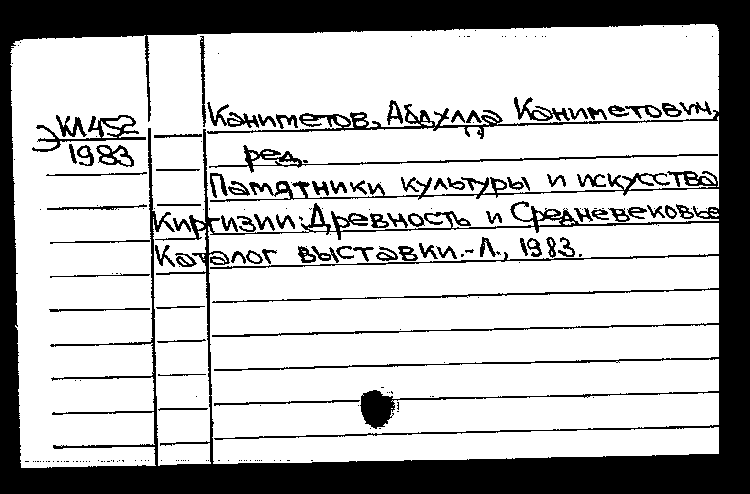 Э КП452
1983
Каниметов, Абдулла Каниметович,
ред.
Памятники культуры и искусства
Киргизии: Древность и Средневековье
Каталог выставки.-Л., 1983.